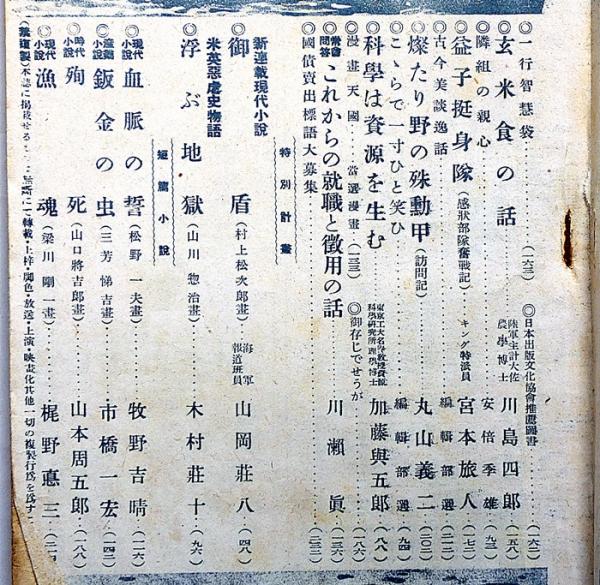 ◎一行智慧袋…………(一六三)
◎日本出版文化協會推薦圖書…………(一六二)
◎玄米食の話 陸軍主計大佐 農學博士 川島四郎(一五八)
◎隣組の親心…………安倍季雄(九三)
◎益子挺身隊(感狀部隊奮戰記) キング特派員 宮本旅人(一七三)
◎古今美談逸話…………編輯部選(二一二)
◎燦たり野の殊勳甲(訪問記)…………丸山義二(二〇二)
◎こゝらで一寸ひと笑ひ…………編輯部選(九四)
◎科學は資源を生む 東京工大名譽敎授資源科學硏究所理學博士 加藤與五郎(八八)
◎漫畫天國 當選漫畫(一三三)
◎御存じでせうが…………(一八六)
◎常會問答 これからの就職と徴用の話…………川瀨眞(一三六)
◎國債賣出標語大募集…………(二三二)
特別計畫
新連載現代小說
◎御盾(村上松次郎畫) 海軍報道班員 山岡莊八(四八)
米英惡虐史物語
◎浮ぶ地獄(山川惣治畫)…………木村莊十(九六)
短篇小說
◎現代小說 血脈の誓(松野一夫畫)…………牧野吉晴(一二六)
◎產業小說 鈑金の虫(三芳悌吉畫)…………市橋一宏(一四二)
◎時代小說 殉死(山口將吉郎畫)…………山本周五郎(一八八)
◎現代小說 漁魂(梁川剛一畫)…………梶野悳三(二一四
(禁複製)本誌に揭載せる 無斷に轉載・上梓・脚色・放送・上演・映畫化其他一切の複製行爲を爲す